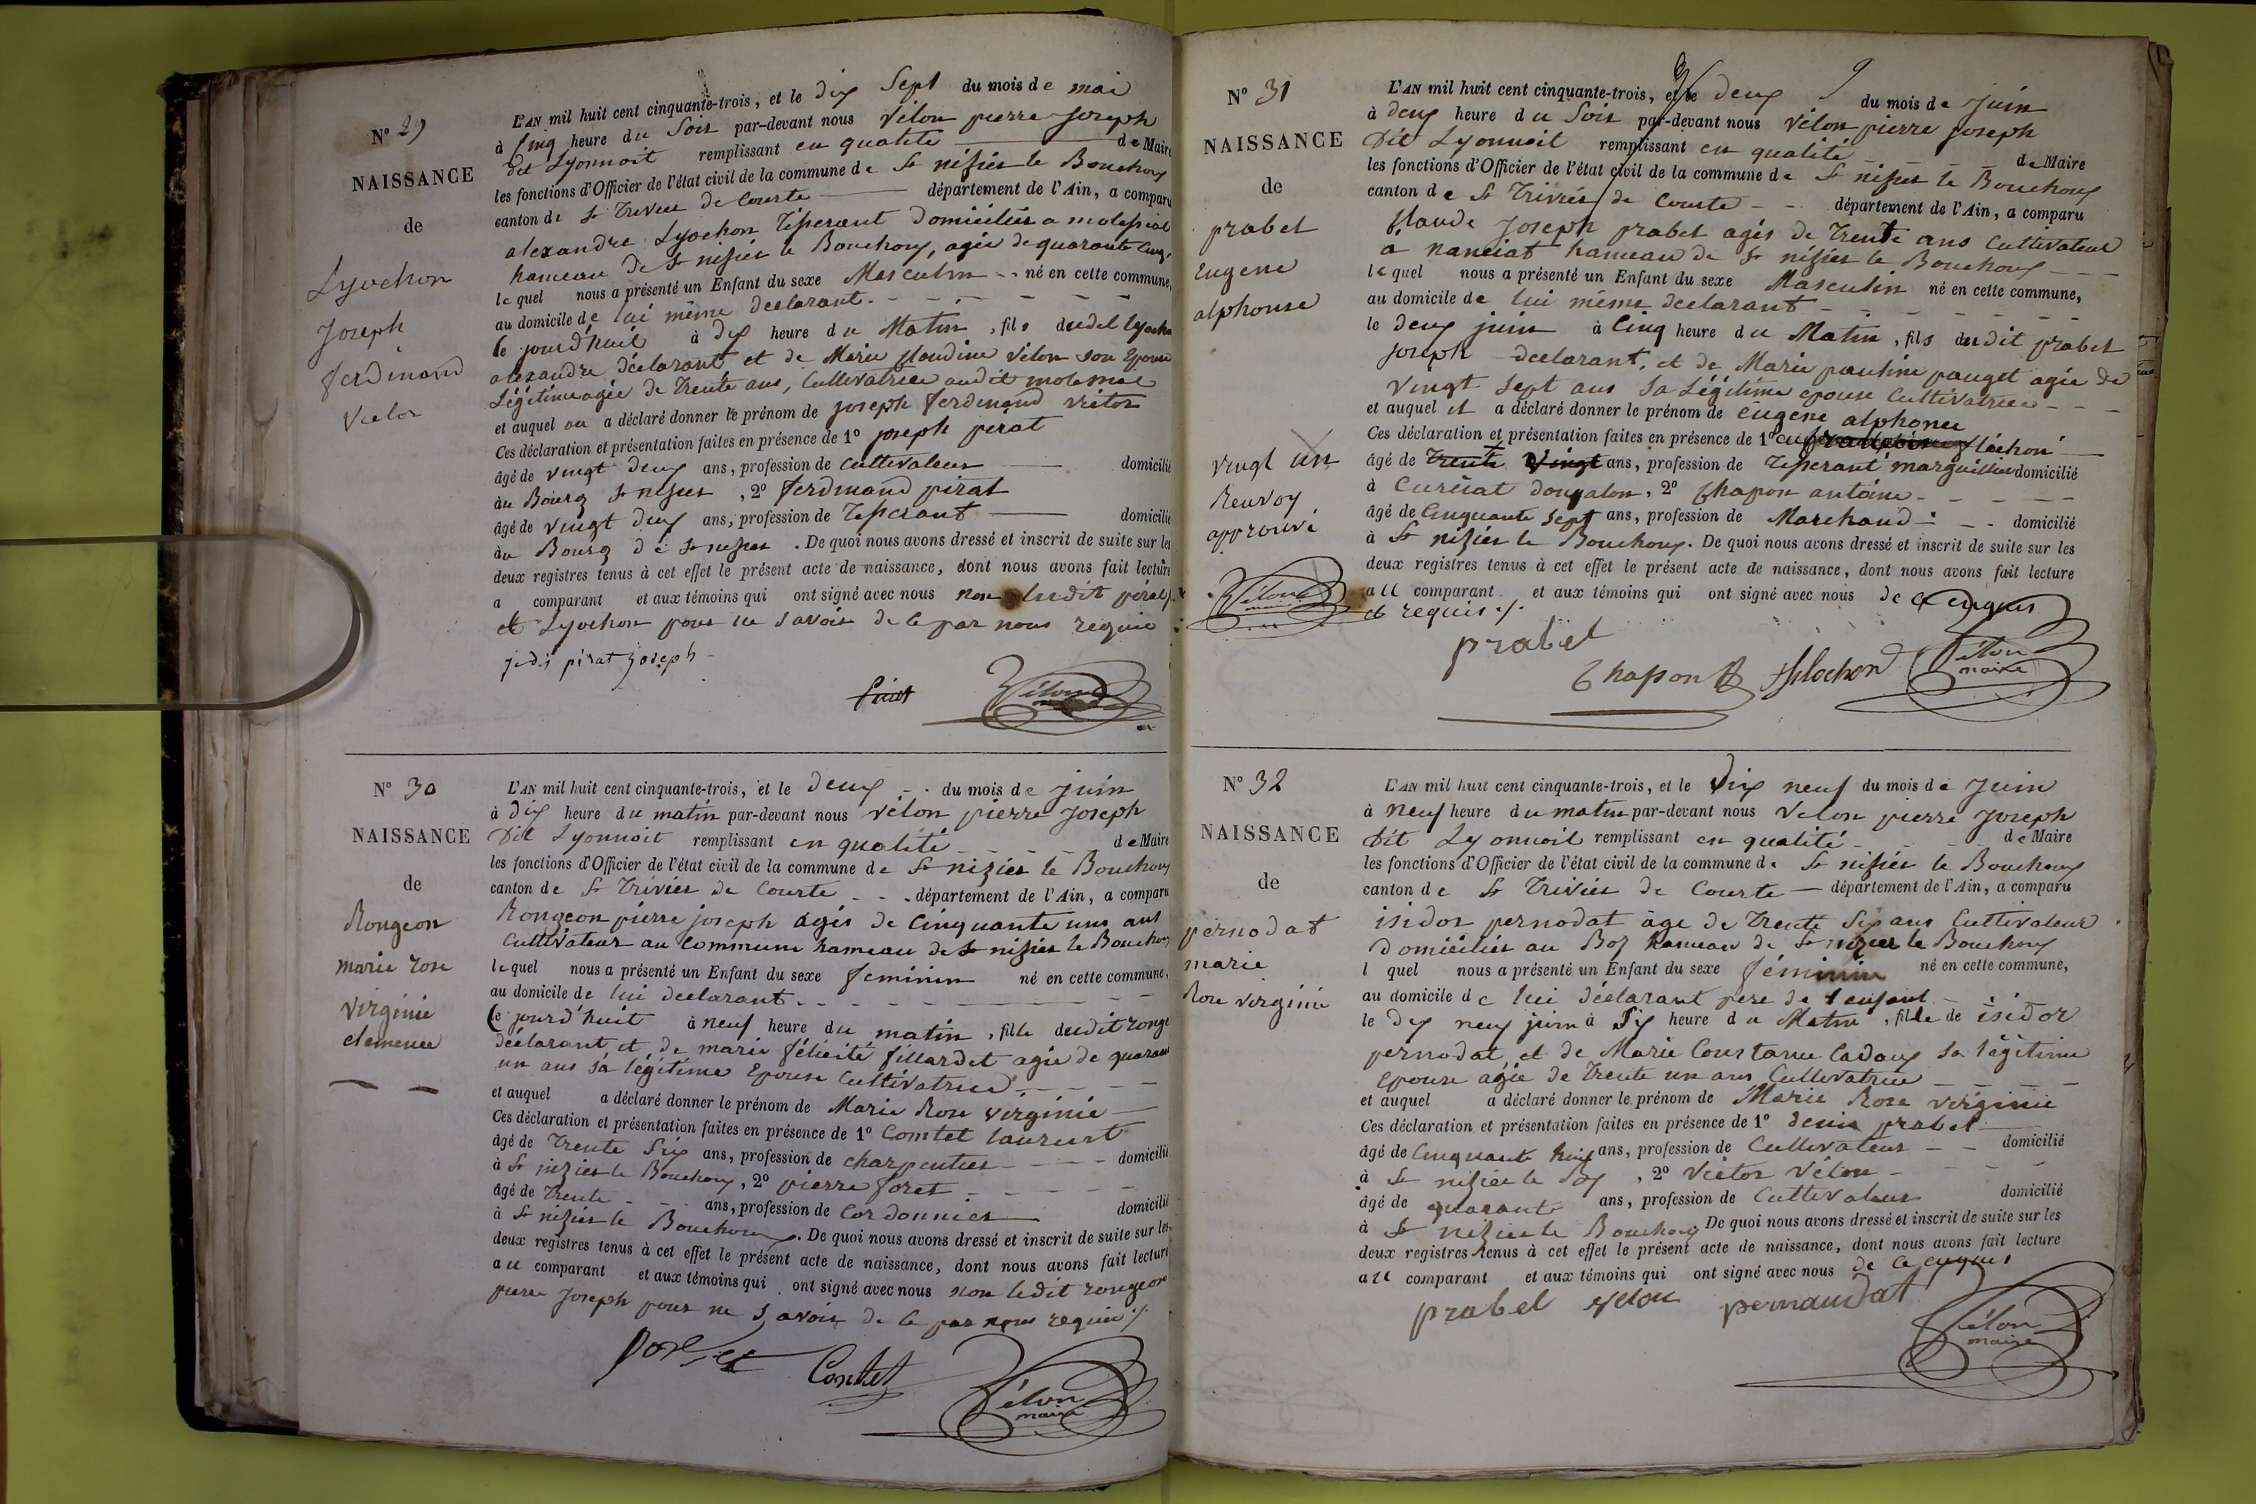 N° 29
NAISSANCE
de
Lyochon
Joseph
ferdinand
Victor
L'AN mil huit cent cinquante-trois, et le dix Sept du mois de mai
à Cinq heure du Soir par-devant nous Vélon pierre Joseph
dit Lyonnoit remplissant en qualité de Maire
les fonctions d'Officier de l'état civil de la commune de St nisier le Bouchoux
canton de St Trivier de Courte département de l'Ain, a comparu
alexandre Lyochon Tisserant domicilier a molassial
hameau de St nisier le Bouchoux, agée de quarante Cinq
lequel nous a présenté un Enfant du sexe Masculin né en cette commune,
au domicile de lui même declarant
le jourd'huit à dix heure du Matin, fils dudit lyocho
alexandre déclarant et de Marie flandine Vélon son Epouse
Légitime agée de Trente ans, Cultivatrice audit
et auquel on a déclaré donner le prénom de joseph ferdinand victor
Ces déclaration et présentation faites en présence de 1° joseph perat
âgé de vingt deux ans, profession de cultivateur domicilié
àu Bourg St nisier, 2° ferdinand pirat
âgé de vingt deux ans, profession de Tisserant domicilié
àu Bourg de St nisier. De quoi nous avons dressé et inscrit de suite sur les
deux registres tenus à cet effet le présent acte de naissance, dont nous avons fait lecture
a comparant et aux témoins qui ont signé avec nous non ledit pirat
et Lyochon pour ne savoir de le par nous requie
je dis pirat joseph
Pirat Vélon
N° 30
NAISSANCE
de
Rongeon
marie rose
virginie
clemence
L'AN mil huit cent cinquante-trois, et le deux du mois de juin
à dix heure du matin par-devant nous vélon pierre Joseph
Dit Lyonnoit remplissant en qualité de Maire
les fonctions d'Officier de l'état civil de la commune de St nizier le Bouchoux
canton de St Trivier de Courte département de l'Ain, a comparu
Rongeon pierre joseph agés de Cinquante uns ans
Cultivateur au Commune hameau de St nisier le Bouchoux
lequel nous a présenté un Enfant du sexe feminin né en cette commune,
au domicile de lui declarant
le jourd'huit à neuf heure du matin, fille dudit ronge
déclarant et de marie félicité fillardet agée de quarant
un ans sa légitime Epouse Cultivatrice
et auquel a déclaré donner le prénom de Marie Rose virginie
Ces déclaration et présentation faites en présence de 1° Comtet laurent
âgé de Trente Six ans, profession de charpentier domicilié
à St nizier le Bouchoux, 2° pierre foret
âgé de Trente ans, profession de Cordonnier domicilié
à St nizier le Bouchoux. De quoi nous avons dressé et inscrit de suite sur les
deux registres tenus à cet effet le présent acte de naissance, dont nous avons fait lecture
au comparant et aux témoins qui ont signé avec nous non ledit rongeon
pierre Joseph pour ne savoir de le par nous requie
Comtet Vélon
maire
N° 31
NAISSANCE
de
prabet
Eugene
alphonse
vingt un
Renvoy
approuvé
Vélon
maire
L'AN mil huit cent cinquante-trois, et le deux du mois de Juin
à deux heure du Soir par-devant nous Vélon pierre joseph
Dit Lyonnoit remplissant en qualité de Maire
les fonctions d'Officier de l'état civil de la commune de St nisier le Bouchoux
canton de St Trivier de Courte département de l'Ain, a comparu
flaude Joseph prabet agés de Trente ans Cultivateur
a nanciat hameau de St nisier le Bouchoux
lequel nous a présenté un Enfant du sexe Masculin né en cette commune,
au domicile de lui même declarant
le deux juin à Cinq heure du Matin, fils dudit prabet
joseph declarant, et de Marie pauline pauget agée de
vingt sept ans Sa Légitime epouse Cultivatrice
et auquel il a déclaré donner le prénom de Eugene alphonse
Ces déclaration et présentation faites en présence de 1° fléchon
âgé de Trente Vingt ans, profession de Tisserant marguillier domicilié
à Curciat dongalon, 2° Chapon antoine
âgé de Cinquante sept ans, profession de Marchand domicilié
à St nizier le Bouchoux. De quoi nous avons dressé et inscrit de suite sur les
deux registres tenus à cet effet le présent acte de naissance, dont nous avons fait lecture
au comparant et aux témoins qui ont signé avec nous de ce enquis
et requis
prabel
Chapon flochon Vélon
maire
N° 32
NAISSANCE
de
pernodat
marie
Rose virginie
L'AN mil huit cent cinquante-trois, et le Dix neuf du mois de Juin
à neuf heure du matin par-devant nous Velon pierre Joseph
Dit Lyonnoit remplissant en qualité de Maire
les fonctions d'Officier de l'état civil de la commune de St nisier le Bouchoux
canton de St Trivier de Courte département de l'Ain, a comparu
isidor pernodat âge de Trente Six ans Cultivateur
domicilier au Boz hameau de St nizier le Bouchoux
l quel nous a présenté un Enfant du sexe féminin né en cette commune,
au domicile de lui déclarant pere de l enfant
le dix neuf juin à Six heure du Matin, fille de isidor
pernodat, et de Marie Constance Cadoux Sa légitime
epouse agée de Trente un ans Cultivatrice
et auquel a déclaré donner le prénom de Marie Rose virginie
Ces déclaration et présentation faites en présence de 1° denis prabel
âgé de Cinquante huit ans, profession de Cultivateur domicilié
à St nisier le Boz, 2° Victor Vélon
âgé de quarante ans, profession de Cultivateur domicilié
à St nizier le Bouchoux De quoi nous avons dressé et inscrit de suite sur les
deux registres tenus à cet effet le présent acte de naissance, dont nous avons fait lecture
au comparant et aux témoins qui ont signé avec nous de ce enquis
prabel velon pernaudat
Vélon
maire